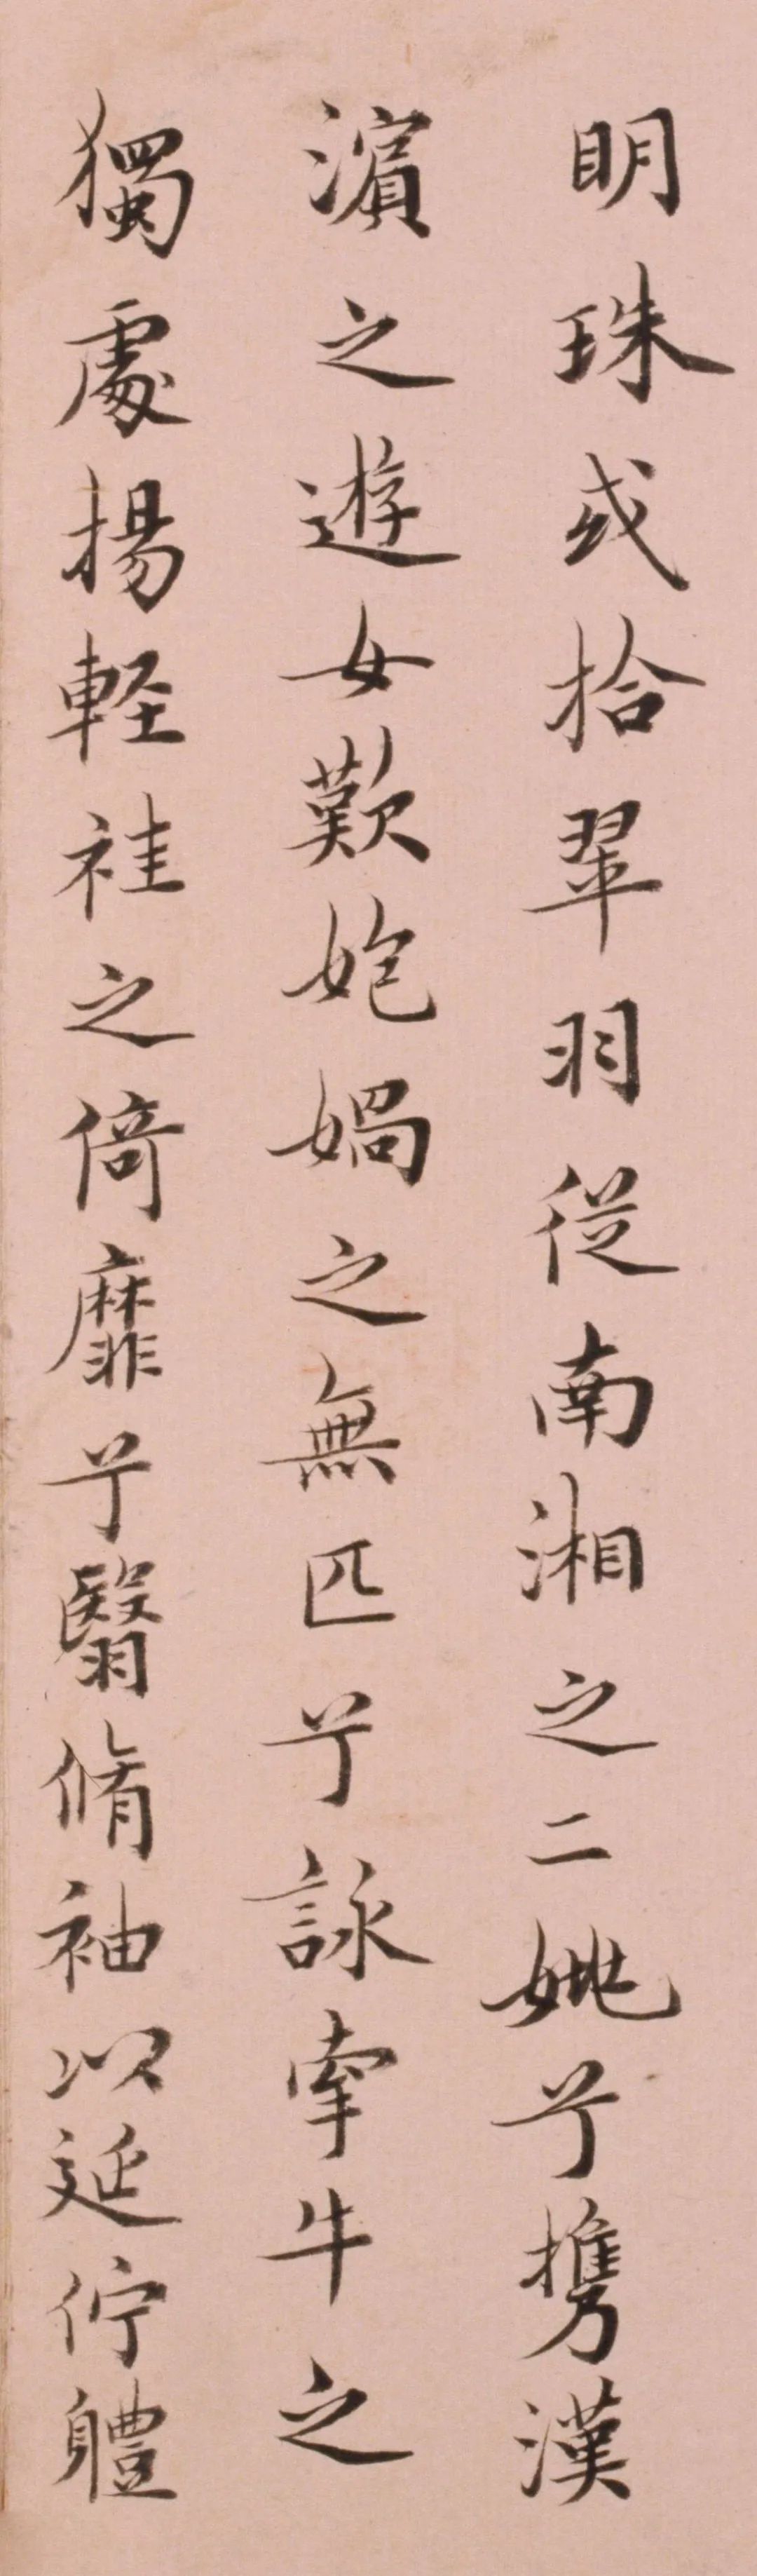 明珠或拾翠羽從南湘之二姚兮携漢
濵之遊女歎匏媧之無匹兮詠牽牛之
獨處揚軽袿之倚靡兮翳脩袖以延佇軆